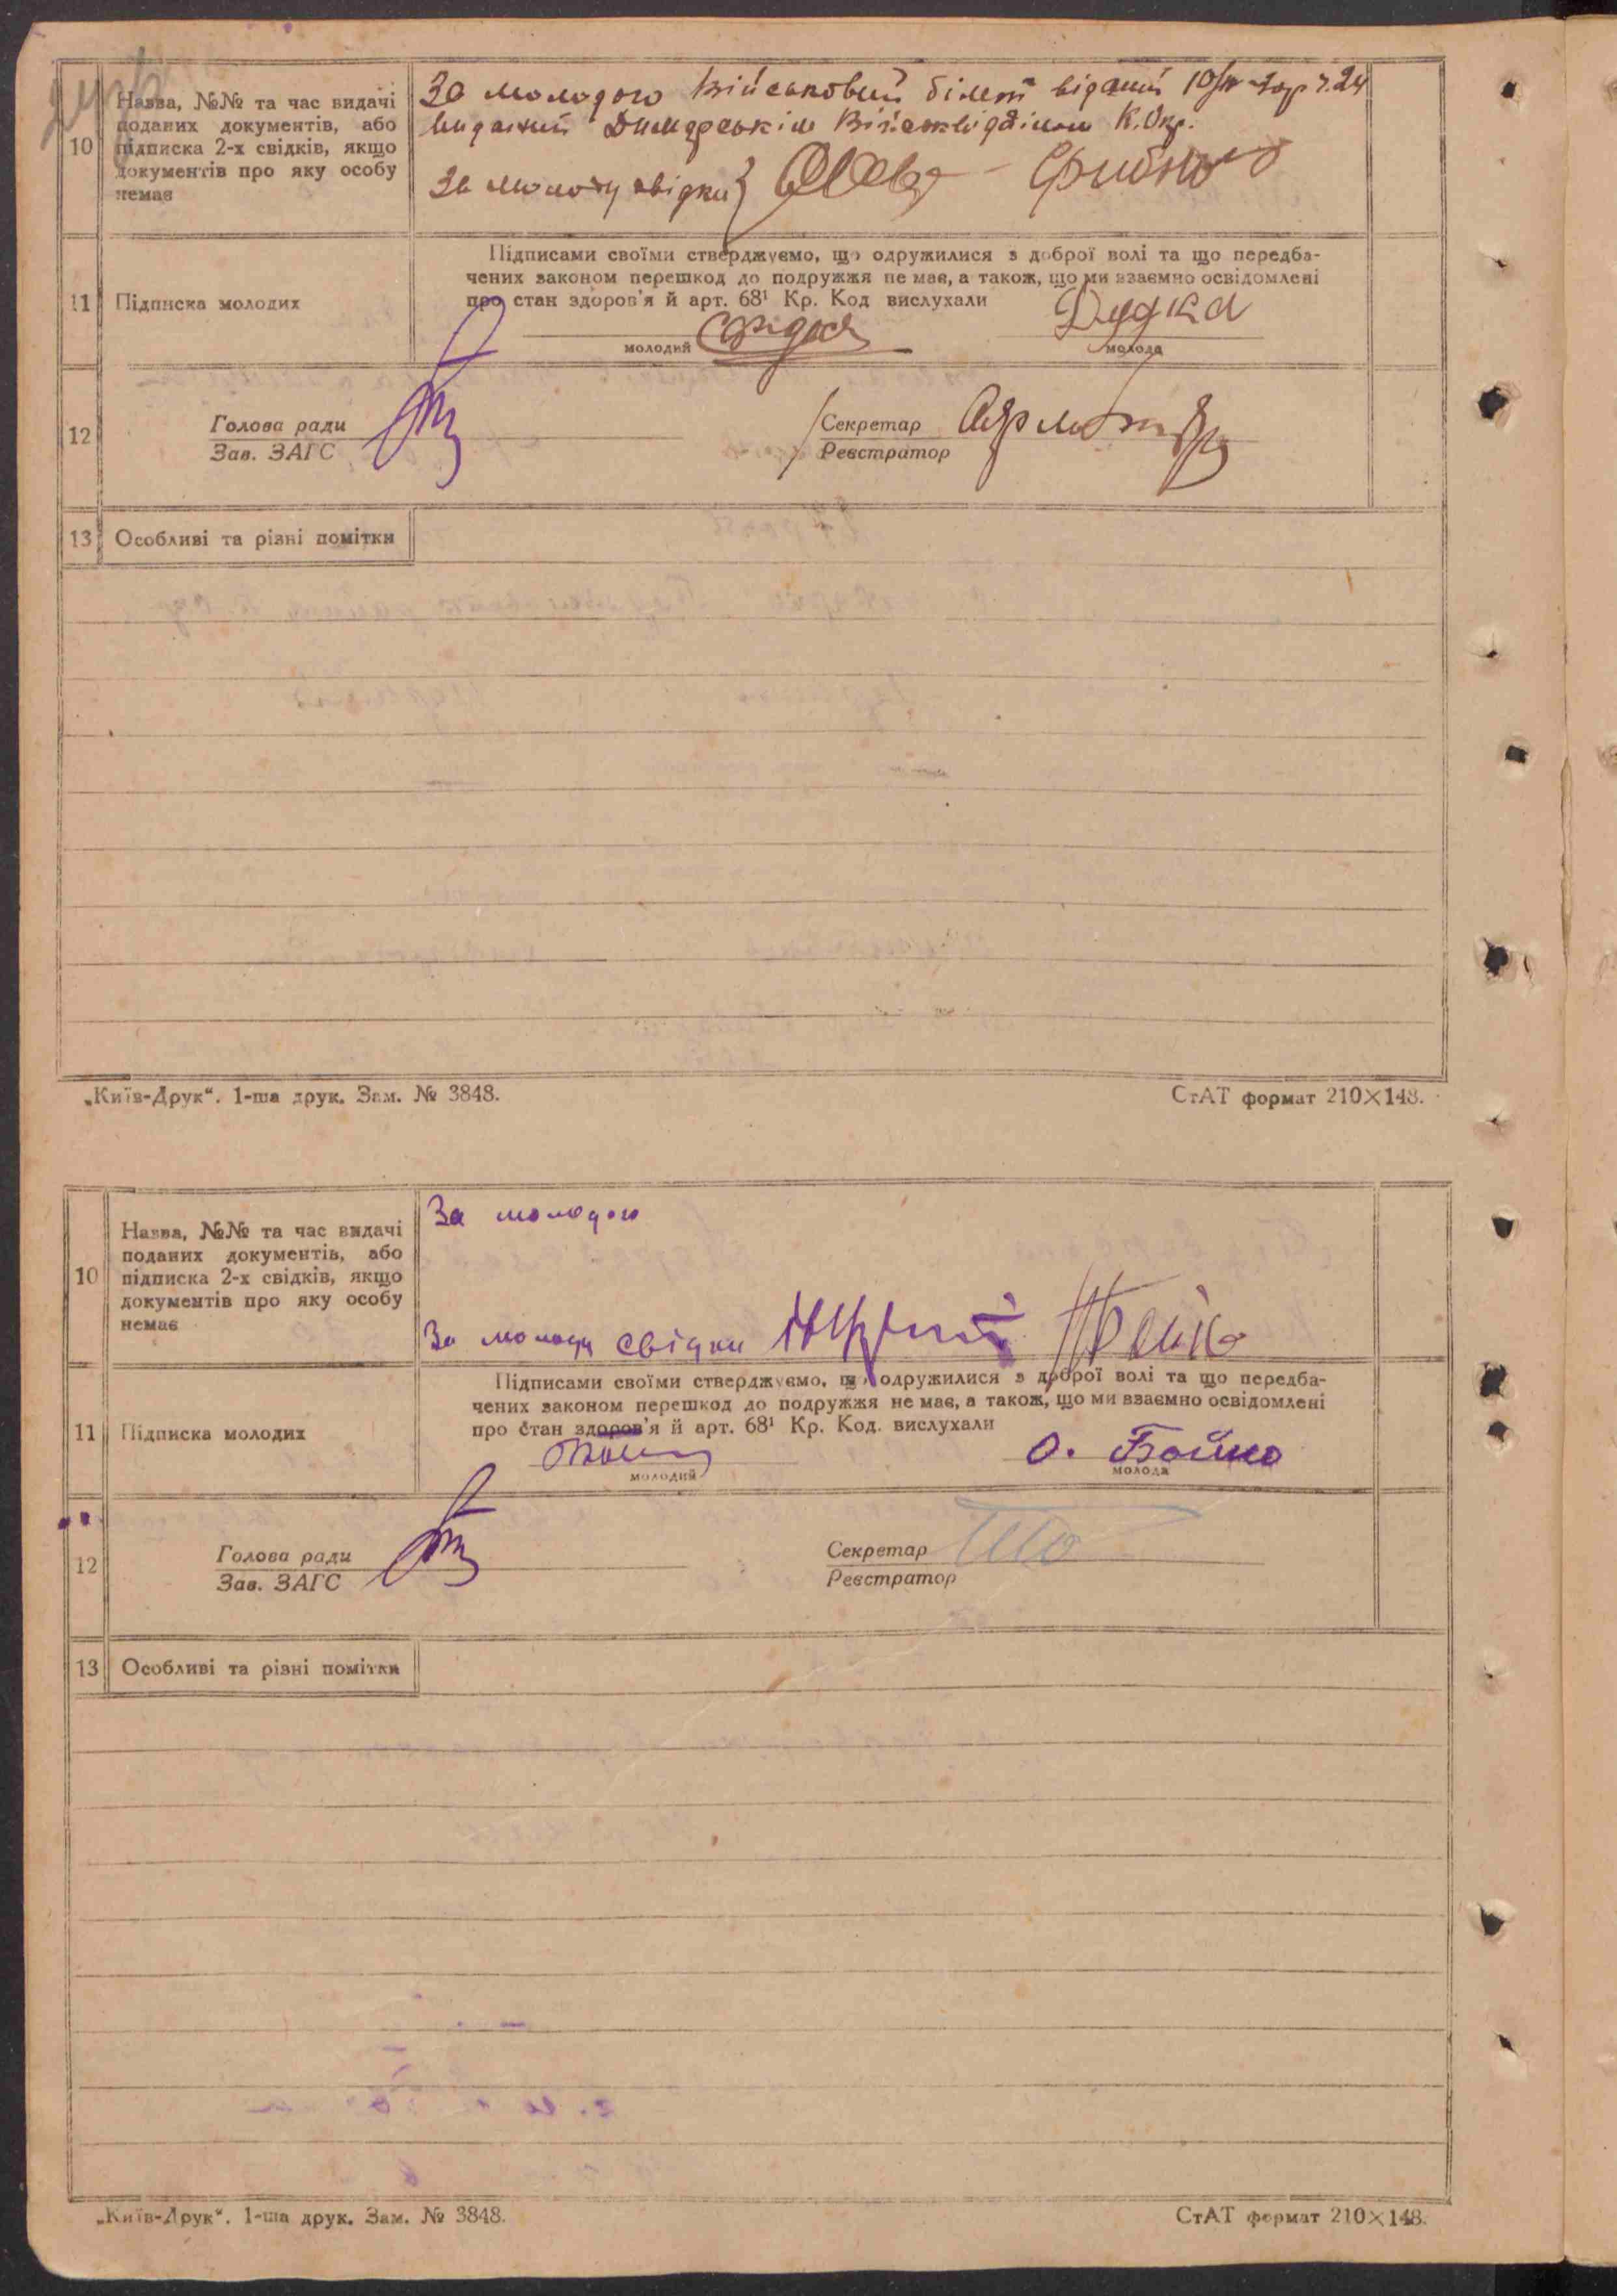 10
Назва, №№ та час видачі
поданих документів, або
підписка 2-х свідків, якщо
документів про яку особу
немає
За молодого Військовий білет
виданий Димерським К. Окр.
За молоду свідки
11
Підписка молодих
Підписами своїми стверджуємо, що одружилися з доброї волі та що передба-
чених законом перешкод до подружжя не має, а також, що ми взаємно освідомлені
про стан здоров'я й арт. 68¹ Кр. Код вислухали
Дудка
молодий
молода
12
Голова ради
Зав. ЗАГС
Секретар
Реєстратор
13
Особливі та різні помітки
„Київ-Друк“. 1-ша друк. Зам. № 3848.
СтАТ формат 210×148.
10
Назва, №№ та час видачі
поданих документів, або
підписка 2-х свідків, якщо
документів про яку особу
немає
За молодого
За молоду свідки
11
Підписка молодих
Підписами своїми стверджуємо, що одружилися з доброї волі та що передба-
чених законом перешкод до подружжя не має, а також, що ми взаємно освідомлені
про стан здоров'я й арт. 68¹ Кр. Код. вислухали
О. Бойко
молодий
молода
12
Голова ради
Зав. ЗАГС
Секретар
Реєстратор
13
Особливі та різні помітки
„Київ-Друк“. 1-ша друк. Зам. № 3848.
СтАТ формат 210×148.